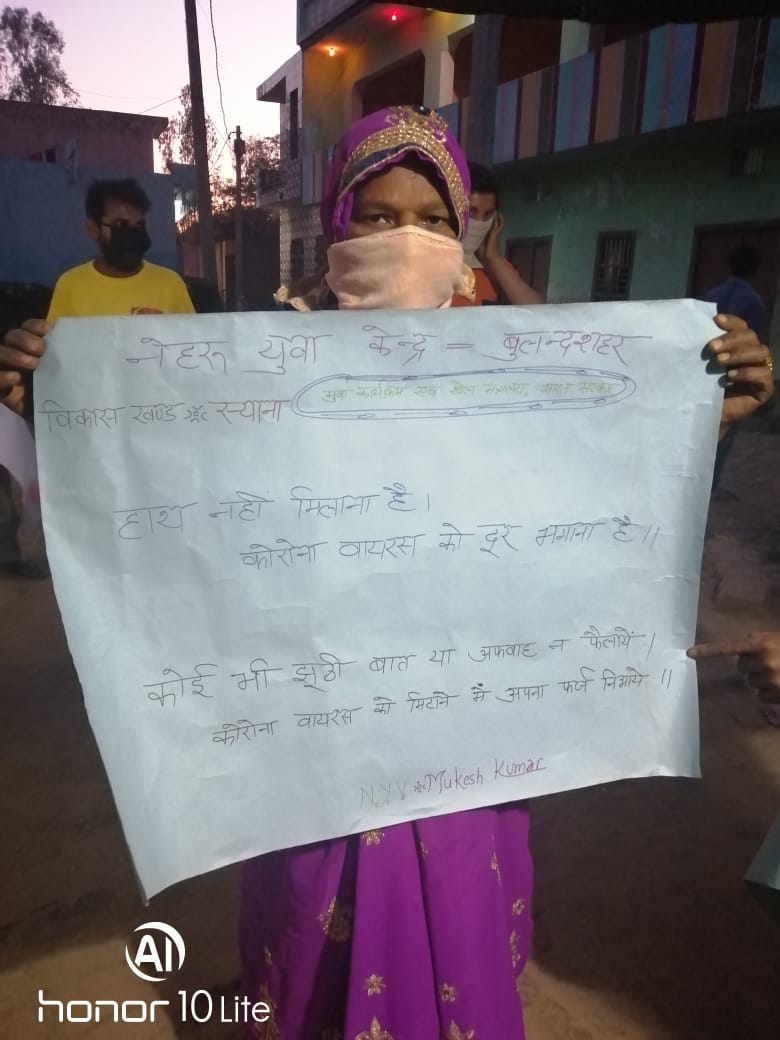 नेहरू युवा केन्द्र = बुलन्दशहर
युवा कार्यक्रम एवं खेल मंत्रालय, भारत सरकार
विकास खण्ड स्याना
हाथ नहीं मिलाना है।
कोरोना वायरस को दूर भगाना है।।
कोई भी झूठी बात या अफवाह न फैलायें।
कोरोना वायरस को मिटाने में अपना फर्ज निभाये।।
N.Y.V. Mukesh Kumar
AI
honor 10 Lite